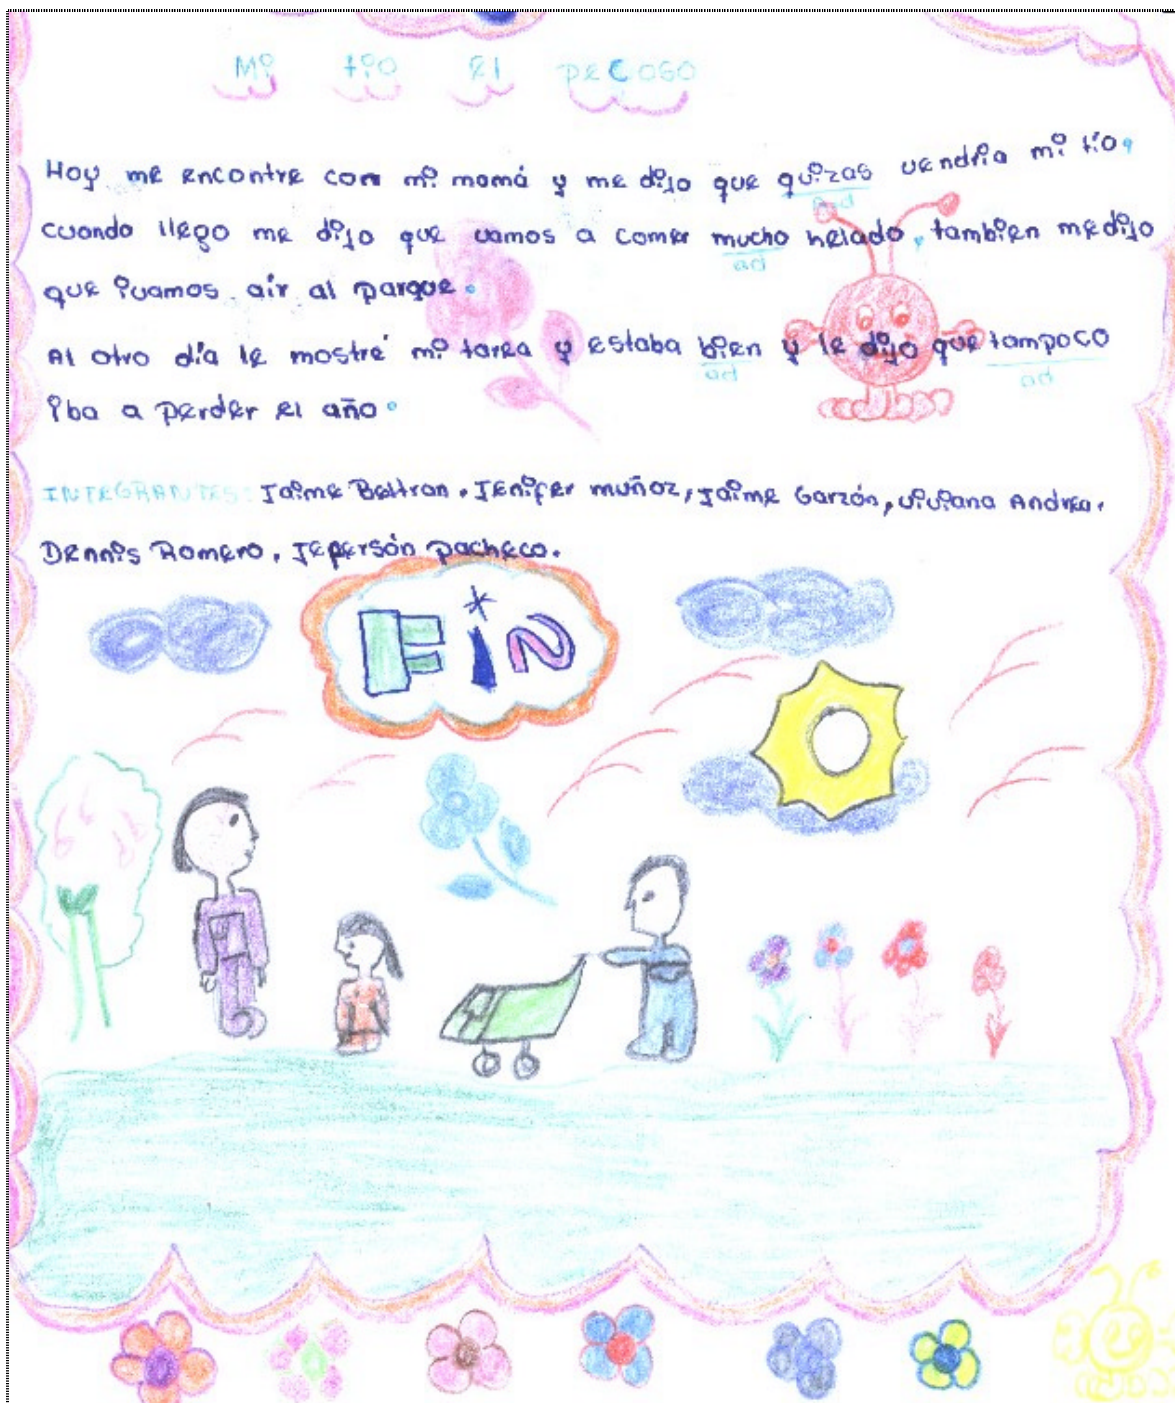 Mi tio el pecoso
Hoy me encontre con mi mamá y me dijo que quizas vendria mi tío,
ad
cuando llego me dijo que vamos a comer mucho helado, tambien medijo
ad
que ivamos air al parque.
Al otro día le mostré mi tarea y estaba bien y le dijo que tampoco
ad ad
iba a perder el año.
INTEGRANTES: Jaime Beltran, Jenifer muñoz, Jaime Garzón, Viviana Andrea,
Dennis Romero, Jepersón pacheco.
FiN